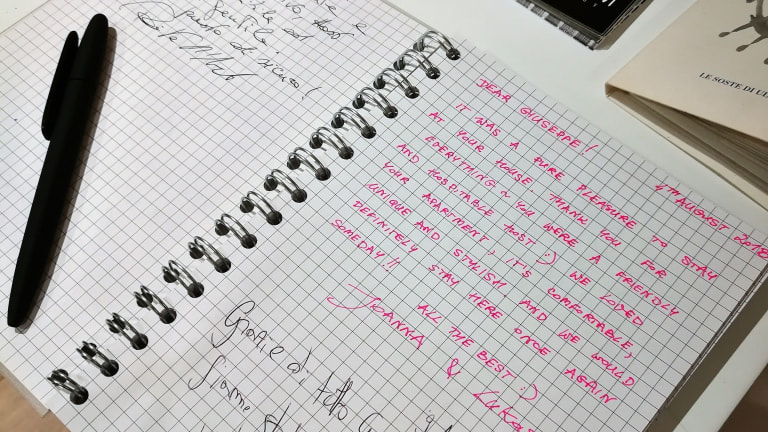 gentile.
7TH AUGUST 2018
DEAR GIUSEPPE!
IT WAS A PURE PLEASURE TO STAY
AT YOUR HOUSE. THANK YOU FOR
EVERYTHING ~ YOU WERE A FRIENDLY
AND HOSPITABLE HOST :) WE LOVED
YOUR APARTMENT, IT'S COMFORTABLE,
UNIQUE AND STYLISH AND WE WOULD
DEFINITELY STAY HERE ONCE AGAIN
SOMEDAY!!
ALL THE BEST :)
JOANNA & 
Grazie di tutto
LE SOSTE DI